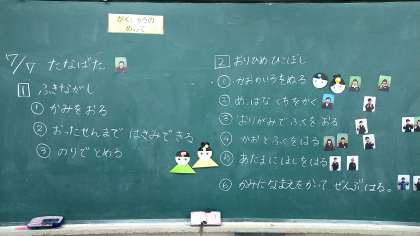 がくしゅうの
めあて
7/7 たなばた
1 ふきながし
① かみをおる
② おったせんまで はさみできる
③ のりでとめる
2 おりひめ、ひこぼし
① かおのいろをぬる
② め、はな、くちをかく
③ おりがみでふくをおる
④ かおとふくをはる
⑤ あたまにほしをはる
⑥ かみになまえをかいて ぜんぶはる。